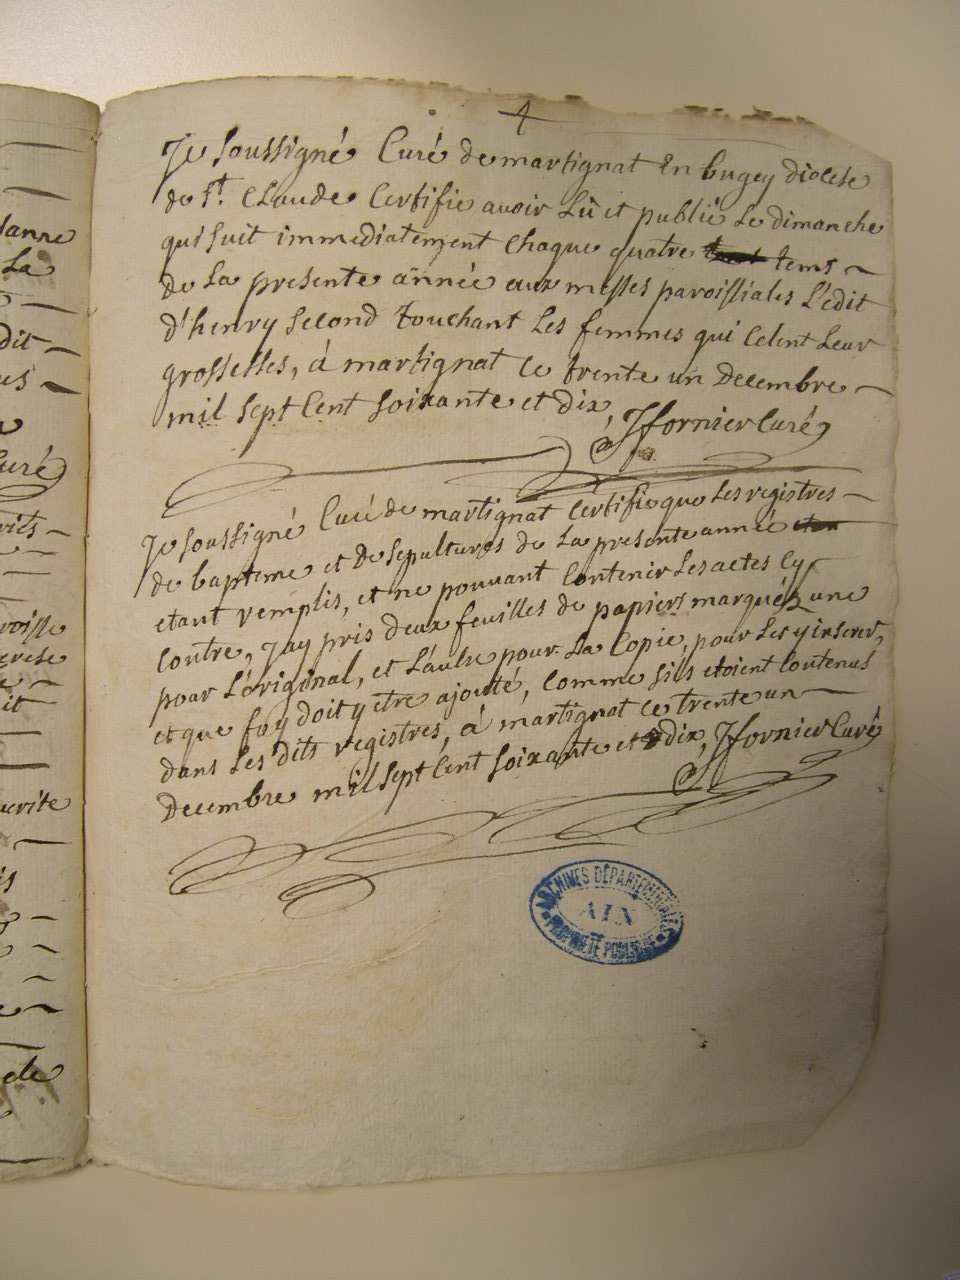 4
Je soussigné Curé de martignat En bugey diocese
de St. Claude Certifie avoir Lû et publié Le dimanche
qui suit immediatement Chaque quatre tems
de La presente année aux messes paroissiales L'édit
d'henry second Touchant Les femmes qui Celent Leur
grossesses, à martignat Ce trente un Decembre
mil sept Cent soixante et dix, Jfornier Curé
Je soussigné Curé de martignat Certifie que Les registres
de bapteme et de sepultures de La presente année
etant remplis, et ne pouvant Contenir Les actes Cy
Contre, Jay pris deux feuilles de papiers marqués une
pour L'original, et L'autre pour La Copie, pour Les y inserer,
et que foy doit y etre ajouté, Comme sils etoient Contenus
dans Les dits registres, à martignat Ce trente un
Decembre mil sept Cent soixante et dix, Jfornier Curé
ARCHIVES DÉPARTEMENTALES
AIN
PROPRIÉTÉ PUBLIQUE
danne
La
dit
Curé
paroisse
erite
de